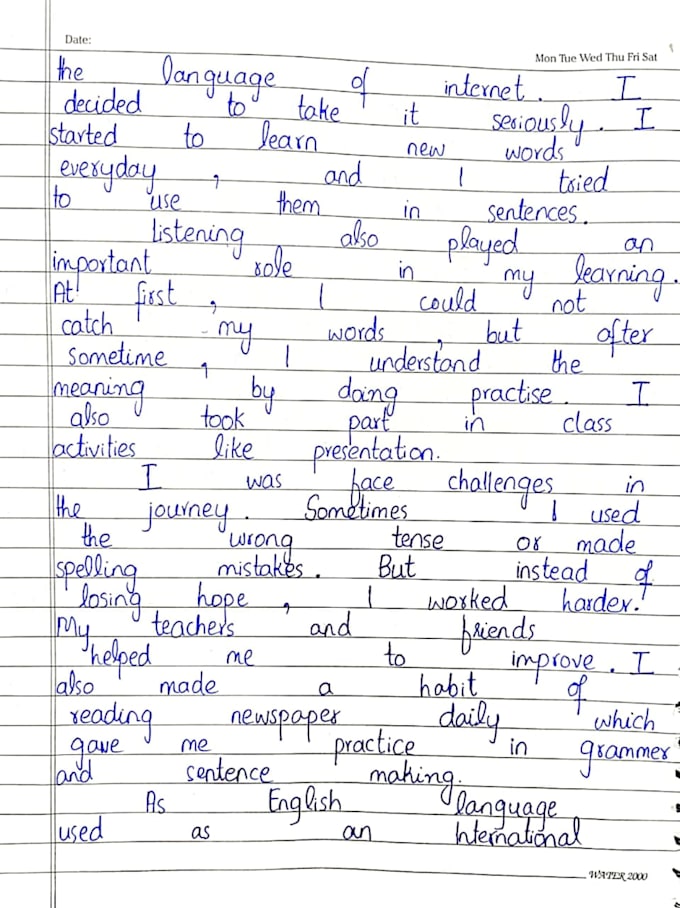 Date:
Mon Tue Wed Thu Fri Sat
the language of internet. I
decided to take it seriously. I
started to learn new words
everyday, and I tried
to use them in sentences.
Listening also played an
important role in my learning.
At first, I could not
catch my words, but after
sometime, I understand the
meaning by doing practise. I
also took part in class
activities like presentation.
I was face challenges in
the journey. Sometimes I used
the wrong tense or made
spelling mistakes. But instead of
losing hope, I worked harder.
My teachers and friends
helped me to improve. I
also made a habit of
reading newspaper daily which
gave me practice in grammer
and sentence making.
As English language
used as an International
WATER 2000